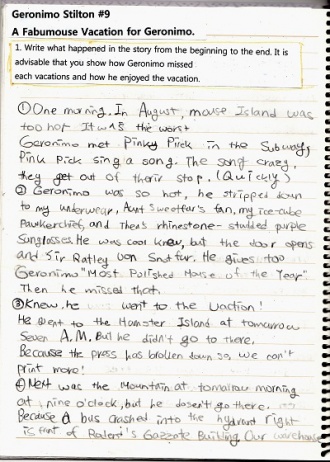 Geronimo Stilton #9
A Fabumouse Vacation for Geronimo.
1. Write what happened in the story from the beginning to the end. It is
advisable that you show how Geronimo missed
each vacations and how he enjoyed the vacation.
① One morning. In August, mouse Island was
too hot It was the worst
Geronimo met Pinky Pick in the Subway,
Pink Pick sing a song. The song crazy,
they get out of their stop. (Quickly)
② Geronimo was so hot, he stripped down
to my underwear, Aunt Sweetfur's fan, my ice-cube
and Thea's rhinestone-studded purple
Sunglasses. He was cool knew, but the door opens
and Sir Ratley Von He gives too
Geronimo "Most Polished Mouse of the Year"
Then he missed that.
③ Knew, he went to the Uaction!
He went to the Hamster Island at tomorrow
Seven A.M. But he didn't go to there,
Because the press has broken down so, we can't
print more!
④ Next was the Mountain at tomorrow morning
at nine o'clock, but he doesn't go there.
Because a bus crashed into the hydrant right
is fant of Rodent's Gazzate Building Our warehouse